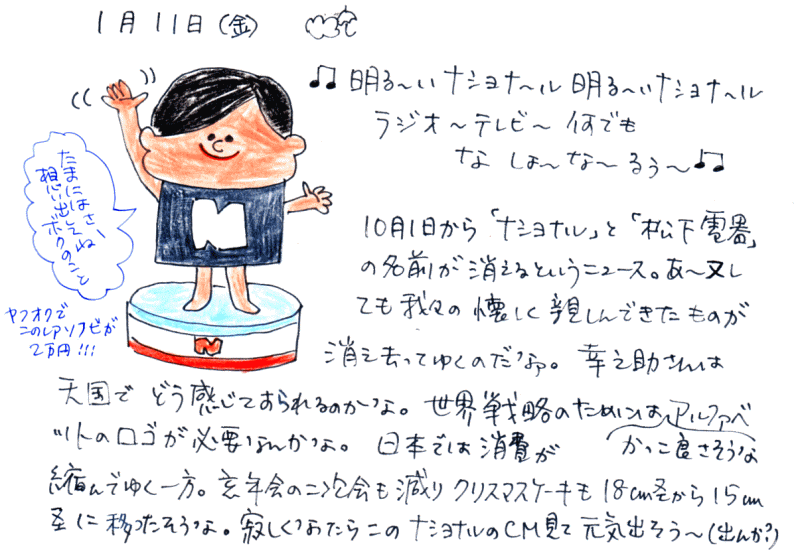 1月11日(金)
♫明る〜いナショナ〜ル 明る〜いナショナ〜ル
ラジオ〜テレビ〜何でも
な しょ〜な〜るぅ〜♫
たまにはさ、
想い出してね
ボクのこと
ヤフオクで
このレアソフビが
2万円!!!
N
N
10月1日から「ナショナル」と「松下電器」
の名前が消えるというニュース。あ〜又し
ても我々の懐しく親しんできたものが
消え去ってゆくのだなぁ。幸之助さんは
天国でどう感じておられるのかなぁ。世界戦略のためにはアルファベ
ットのロゴが必要なんかなぁ。日本では消費が
かっこ良さそうな
縮んでゆく一方。忘年会の二次会も減りクリスマスケーキも18cm径から15cm
径に移ったそうな。寂しくなったらこのナショナルのCM見て元気出そう〜(出んか?)